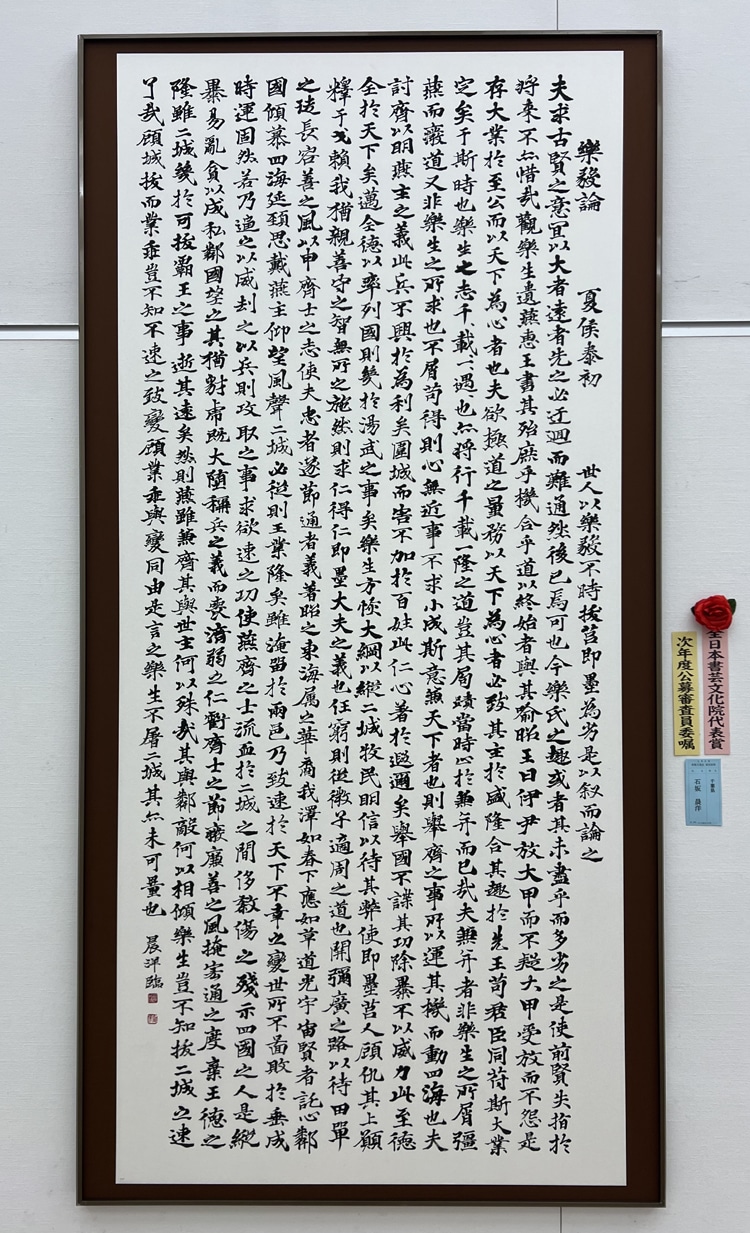 樂毅論 夏侯泰初 世人以樂毅不時拔莒即墨為劣是以叙而論之
夫求古賢之意宜以大者遠者先之必迂迴而難通然後已焉可也今樂氏之趣或者其未盡乎而多劣之是使前賢失指於
將来不亦惜哉觀樂生遺燕惠王書其殆庶乎機合乎道以終始者與其喻昭王曰伊尹放大甲而不疑大甲受放而不怨是
存大業於至公而以天下為心者也夫欲極道之量務以天下為心者必致其主於盛隆合其趣於先王苟君臣同符斯大業
定矣于斯時也樂生之志千載一遇也亦將行千載一隆之道豈其局蹟當時止於兼并而已哉夫兼并者非樂生之所屑彊
燕而癈道又非樂生之所求也不屑苟得則心無近事不求小成斯意兼天下者也則舉齊之事所以運其機而動四海也夫
討齊以明燕主之義此兵不興於為利矣圍城而害不加於百姓此仁心著於遐邇矣舉國不謀其功除暴不以威力此至德
全於天下矣邁全德以率列國則幾於湯武之事矣樂生方恢大綱以縱二城牧民明信以待其弊使即墨莒人顧仇其上願
釋干戈賴我猶親善守之智無所之施然則求仁得仁即墨大夫之義也任窮則從微子適周之道也開彌廣之路以待田單
之徒長容善之風以申齊士之志使夫忠者遂節通者義著昭之東海属之華裔我澤如春下應如草道光宇宙賢者託心鄰
國傾慕四海延頚思戴燕主仰望風聲二城必從則王業隆矣雖淹留於兩邑乃致速於天下不幸之變世所不啚敗於垂成
時運固然若乃逼之以威刼之以兵則攻取之事求欲速之功使燕齊之士流血於二城之間侈殺傷之殘示四國之人是縱
暴易亂貪以成私鄰國望之其猶豺虎既大墮稱兵之義而喪濟弱之仁虧齊士之節癈廉善之風掩宏通之度棄王徳之
隆雖二城幾於可拔霸王之事逝其遠矣然則燕雖兼齊其與世主何以殊哉其與鄰敵何以相傾樂生豈不知拔二城之速
了哉顧城拔而業乖豈不知不速之致變顧業乖與變同由是言之樂生不屠二城其亦未可量也 晨洋臨
全日本書芸文化院代表賞
次年度公募審査員委嘱
千葉県
石坂 晨洋